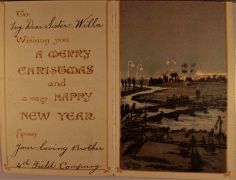 To
My Dear Sister Willa
Wishing you
A MERRY
CHRISTMAS
and
a very HAPPY
NEW YEAR
from
Your Loving Brother
4th Field Company